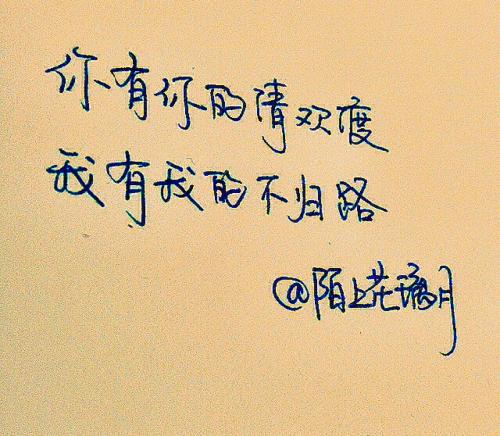 你有你的清欢度
我有我的不归路
@陌上花璃月